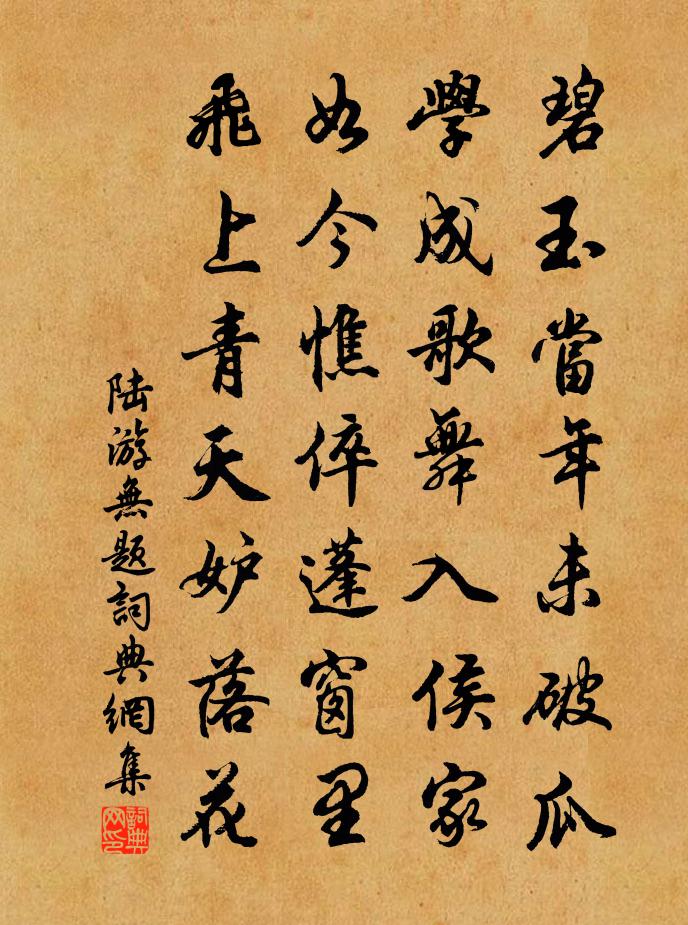 碧玉當年未破瓜
學成歌舞入侯家
如今憔倅蓬窗里
飛上青天妒落花
陆游無题詞典網集
詞典网印